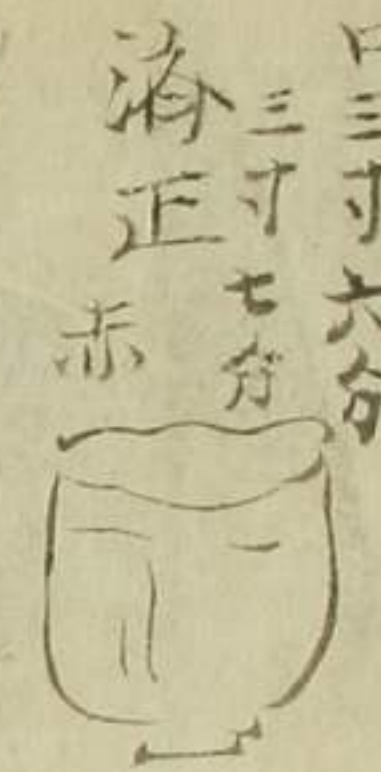 口三寸六分
三寸七分
済正
赤